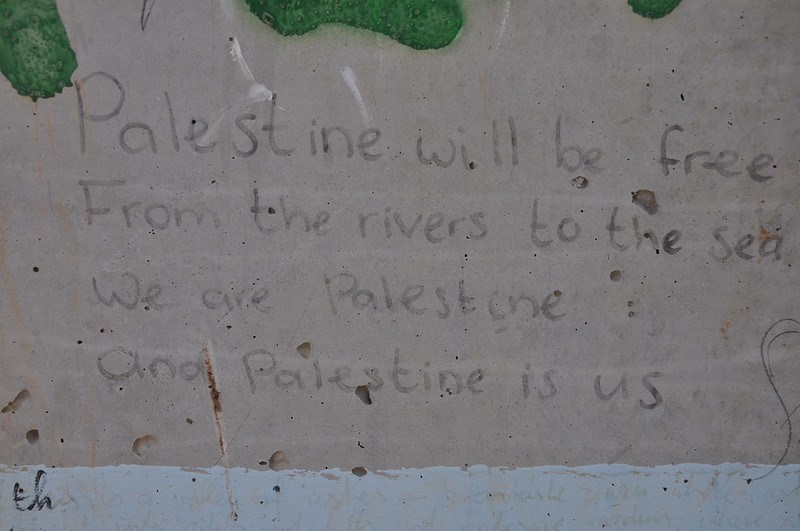 Palestine will be free
From the rivers to the sea
We are Palestine
and Palestine is us
th